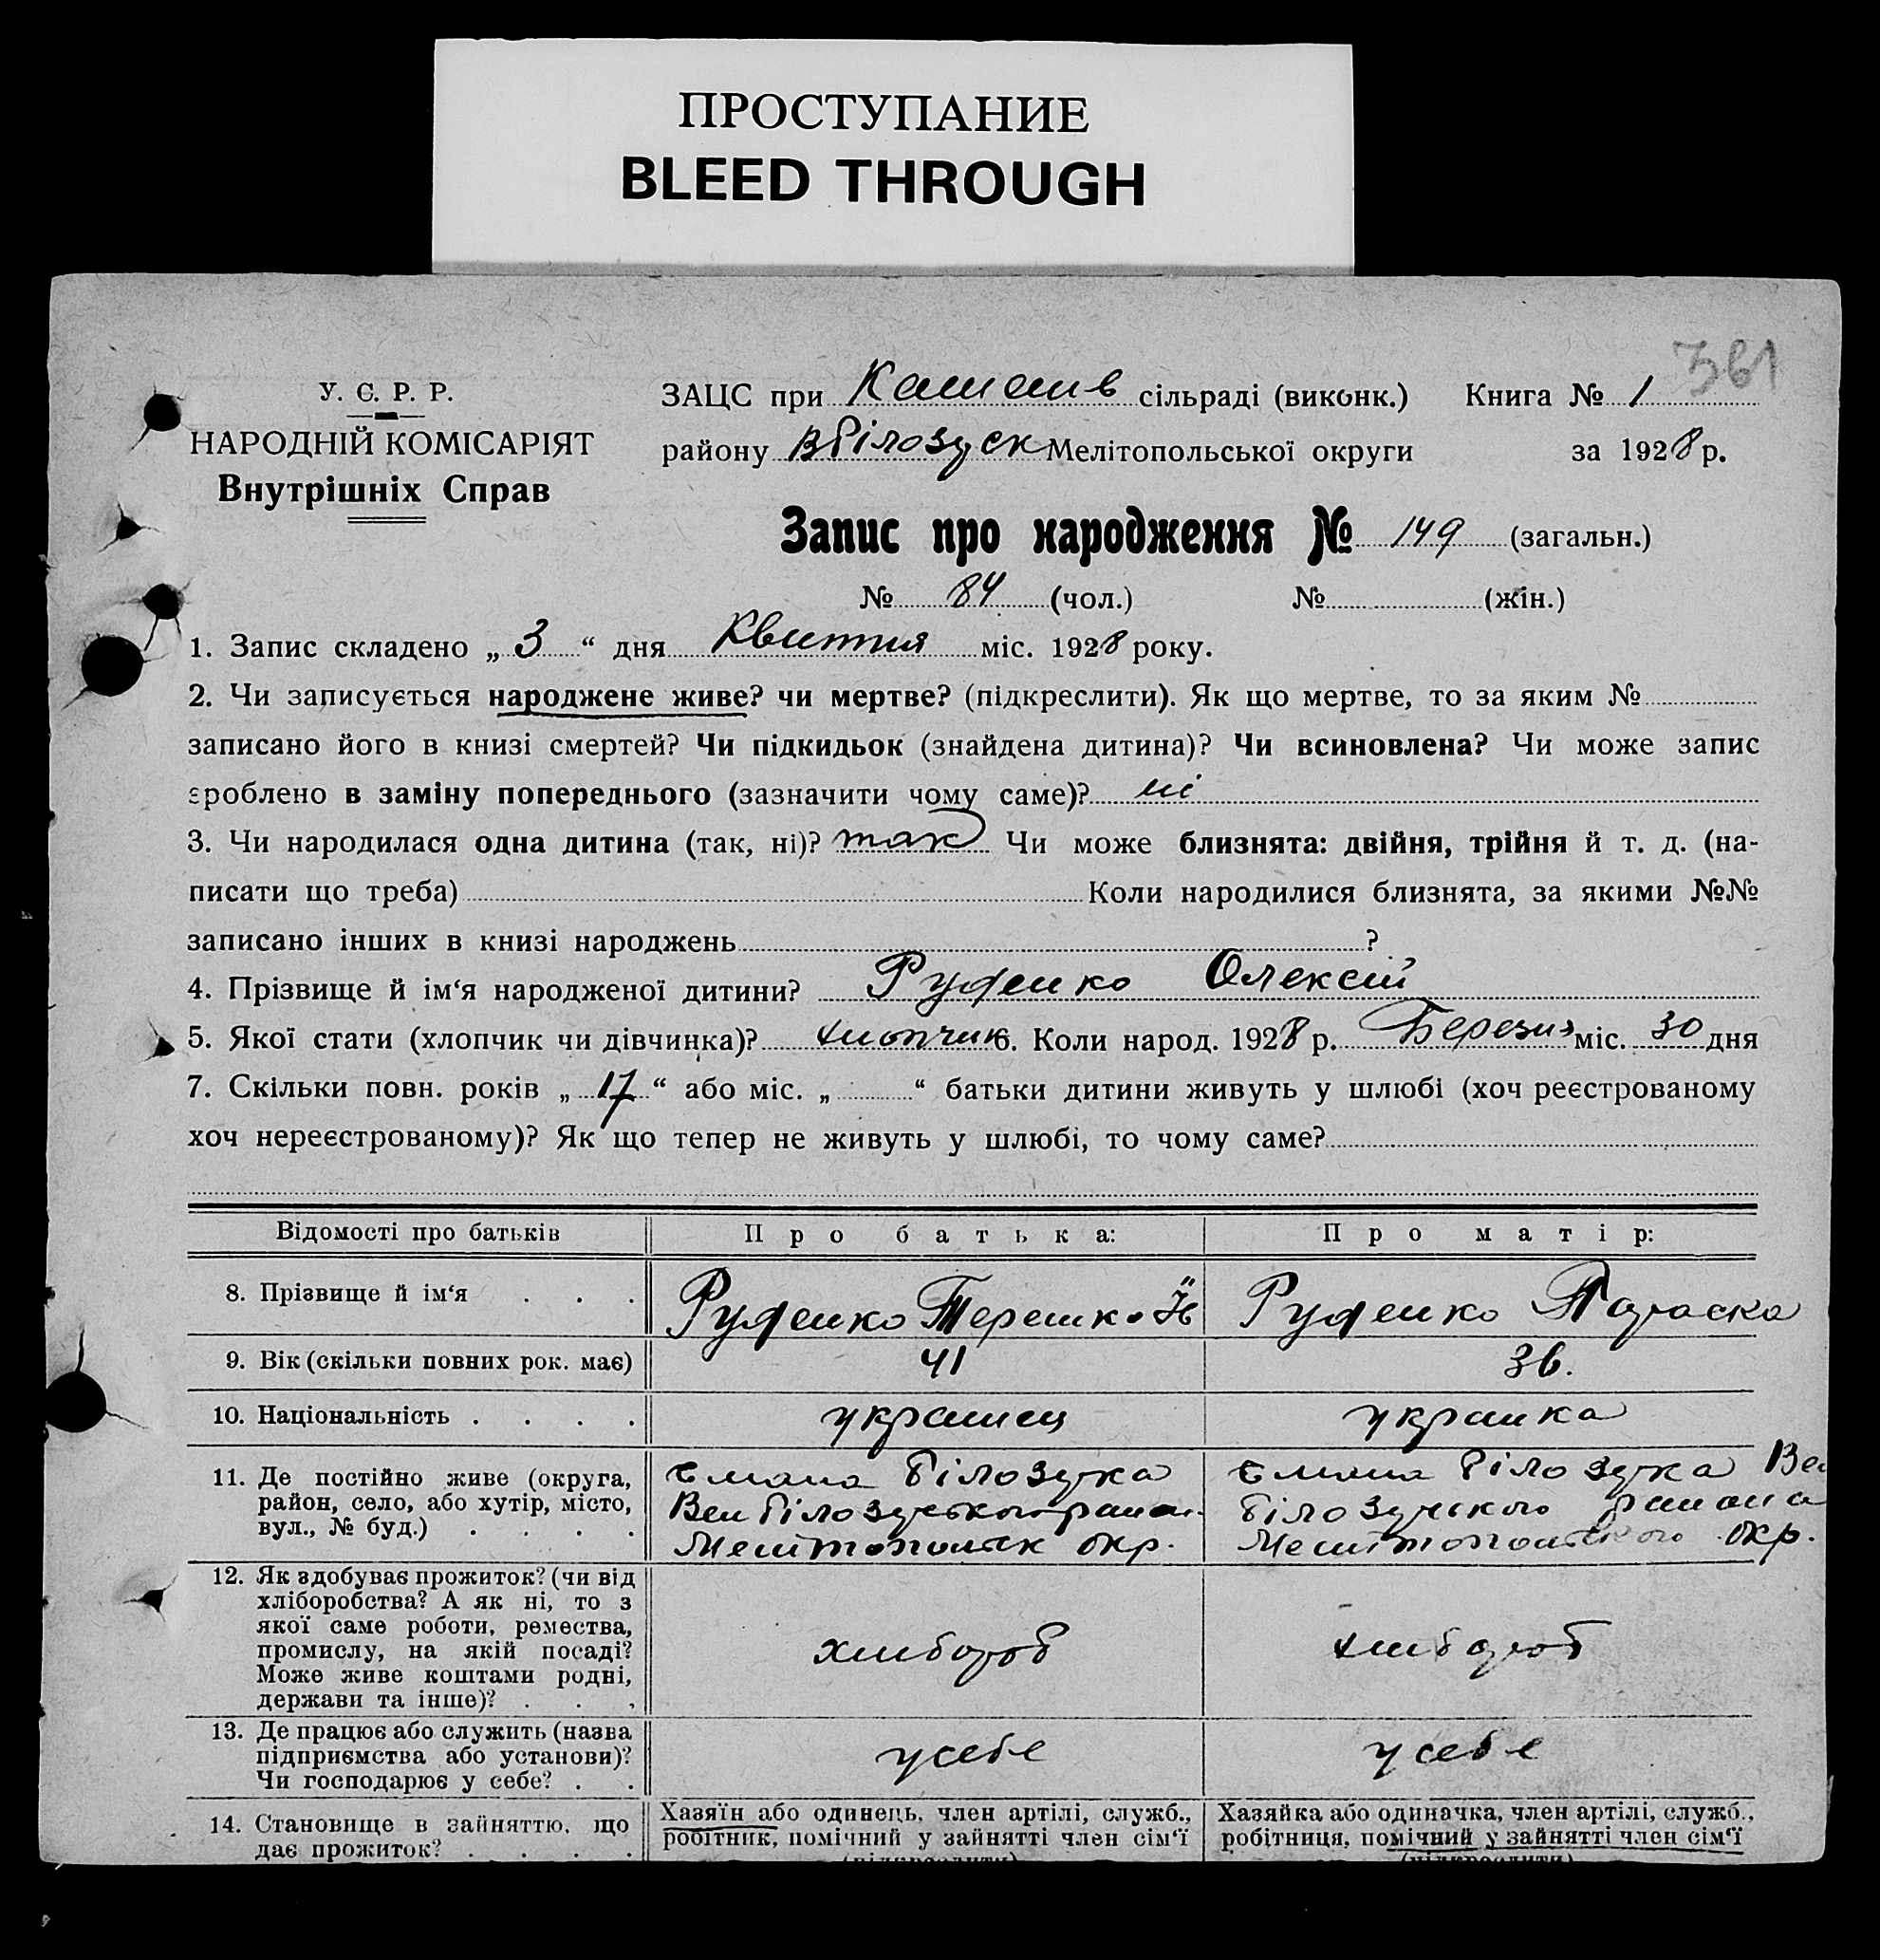 ПРОСТУПАНИЕ
BLEED THROUGH
361
У. С. Р. Р.
НАРОДНІЙ КОМІСАРІЯТ
Внутрішніх Справ
ЗАЦС при сільраді (виконк.) Книга № 1
району ВБілозуск Мелітопольської округи за 1928 р.
Запис про народження № 149 (загальн.)
№ 84 (чол.) № (жін.)
1. Запис складено „ 3 “ дня Квитня міс. 1928 року.
2. Чи записується народжене живе? чи мертве? (підкреслити). Як що мертве, то за яким №
записано його в книзі смертей? Чи підкидьок (знайдена дитина)? Чи всиновлена? Чи може запис
зроблено в заміну попереднього (зазначити чому саме)? ні
3. Чи народилася одна дитина (так, ні)? так Чи може близнята: двійня, трійня й т. д. (на-
писати що треба) Коли народилися близнята, за якими №№
записано інших в книзі народжень ?
4. Прізвище й ім‘я народженої дитини? Руденко Олексій
5. Якої стати (хлопчик чи дівчинка)? хлопчик 6. Коли народ. 1928 р. Березня міс. 30 дня
7. Скільки повн. років „ 17 “ або міс. „ “ батьки дитини живуть у шлюбі (хоч реєстрованому
хоч нереєстрованому)? Як що тепер не живуть у шлюбі, то чому саме?
Відомості про батьків Про батька: Про матір:
8. Прізвище й ім‘я . . . Руденко Терешко Руденко Параска
9. Вік (скільки повних рок. має) 41 36.
10. Національність . . . . украинец украинка
11. Де постійно живе (округа,
район, село, або хутір, місто,
вул., № буд.) . . . .
Білозурка
Вел Білозурського
Мелітопольск окр.
Білозурка Вел
Білозурського района
Мелітопольского окр.
12. Як здобуває прожиток? (чи від
хліборобства? А як ні, то з
якої саме роботи, ремества,
промислу, на якій посаді?
Може живе коштами родні,
держави та інше)? . . .
хлибороб хлибороб
13. Де працює або служить (назва
підприємства або установи)?
Чи господарює у себе? . .
у себе у себе
14. Становище в зайняттю, що
дає прожиток? . . . .
Хазяїн або одинець, член артілі, служб.,
робітник, помічний у зайнятті член сім‘ї
(підкреслити)
Хазяйка або одиначка, член артілі, служб.,
робітниця, помічний у зайнятті член сім‘ї
(підкреслити)